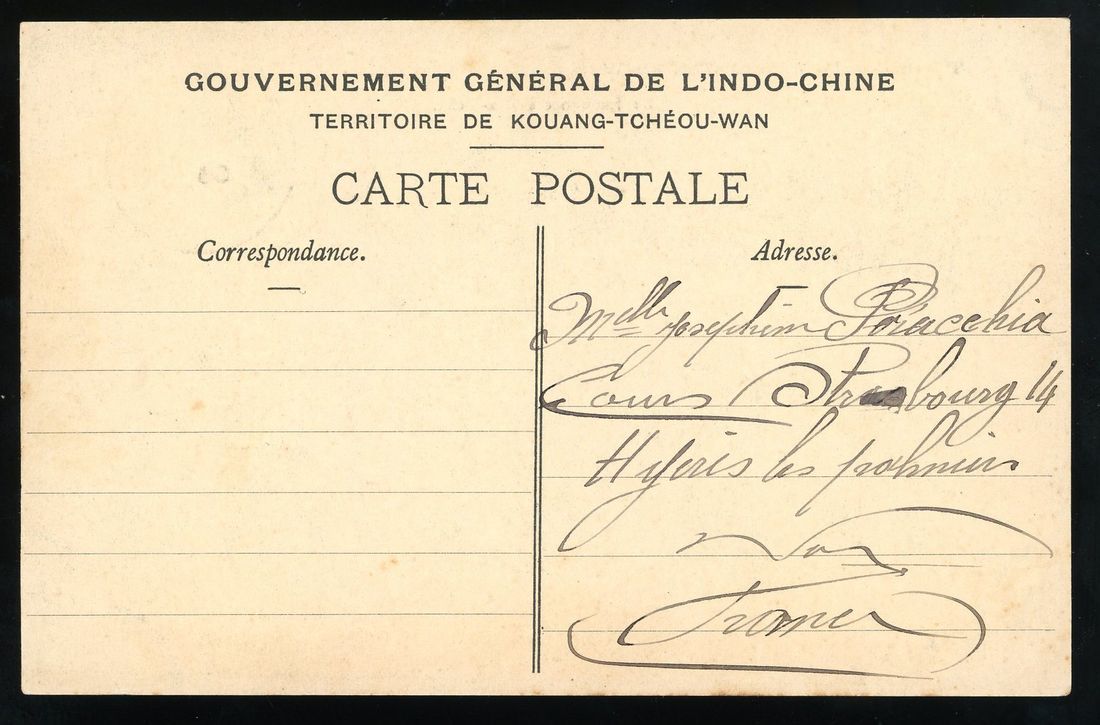 GOUVERNEMENT GÉNÉRAL DE L'INDO-CHINE
TERRITOIRE DE KOUANG-TCHÉOU-WAN
CARTE POSTALE
Correspondance.
Adresse.
Melle Josephine
Cours Strasbourg 14
Hyeris les palmiers
Var
France